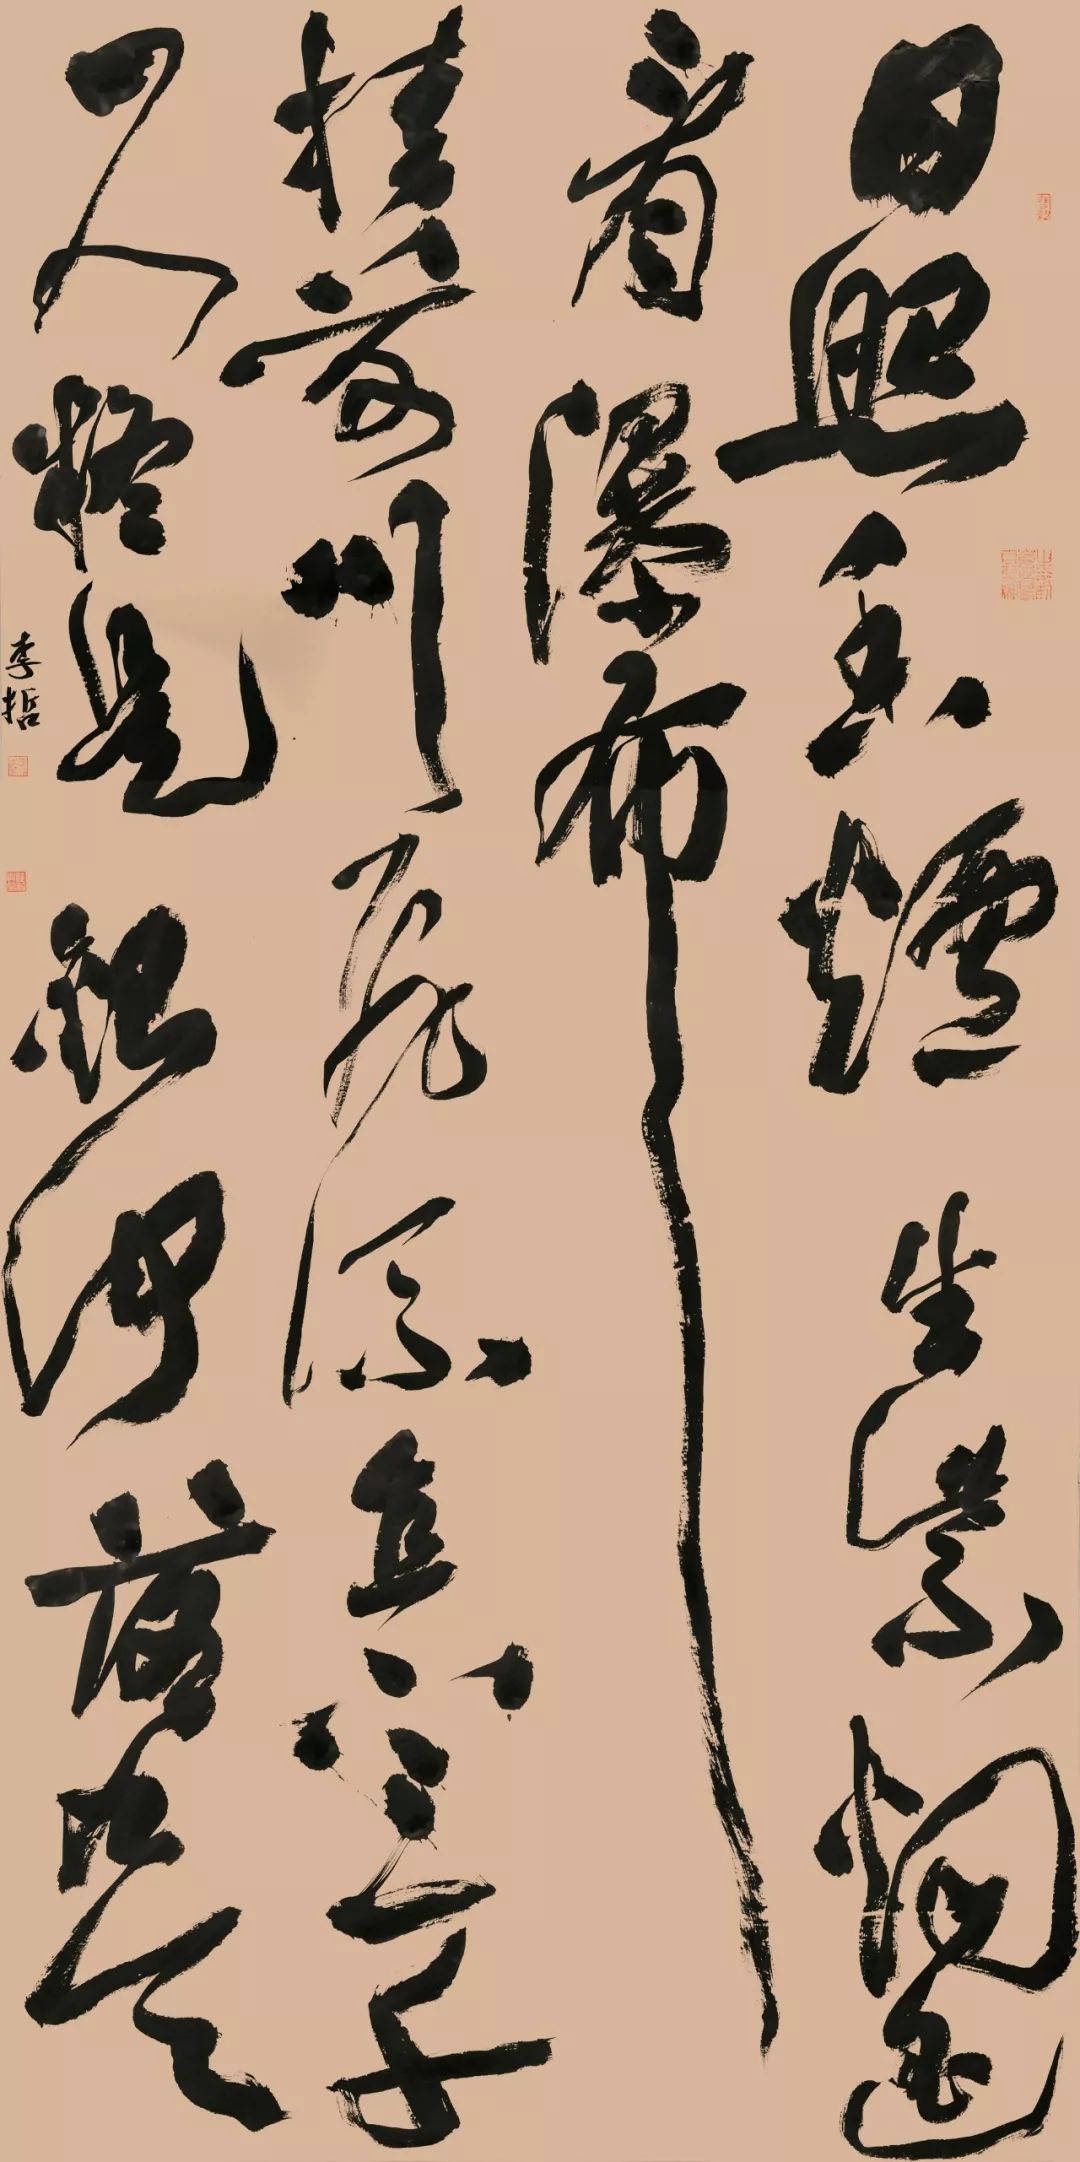 日照香爐生紫烟遥
看瀑布
挂前川飛流直下三千
尺疑是銀河落九天
李哲